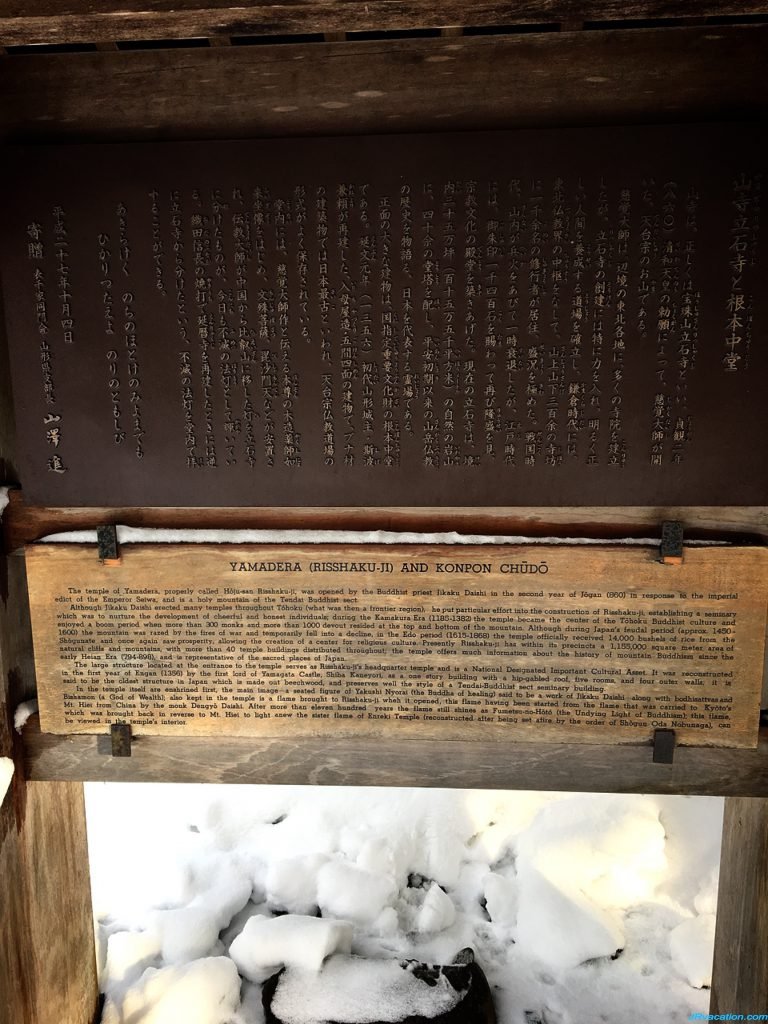 山寺立石寺と根本中堂
山寺は、正しくは宝珠山立石寺といい、貞観二年
(八六〇)清和天皇の勅願によって、慈覚大師が開
いた、天台宗のお山である。
慈覚大師は、辺境の東北各地に多くの寺院を建立
したが、立石寺の創建には特に力を入れ、明るく正
しい人間を養成する道場を確立し、鎌倉時代には、
東北仏教界の中枢をなして、山上山下三百余の寺坊
に一千余名の修行者が居住、盛況を極めた。戦国時
代、山内が兵火をあびて一時衰退したが、江戸時代
には、御朱印一千四百二十石を賜わって再び隆盛を見、
宗教文化の殿堂を築きあげた。現在の立石寺は、境
内三十五万坪(百十五万五千平方米)の自然の岩山
に、四十余の堂塔を配し、平安初期以来の山岳仏教
の歴史を物語る、日本を代表する霊場である。
正面の大きな建物は、国指定重要文化財の根本中堂
である。延文元年(一三五六)初代山形城主・斯波
兼頼が再建した、入母屋造・五間四面の建物で、ブナ材
の建築物では日本最古といわれ、天台宗仏教道場の
形式がよく保存されている。
堂内には、慈覚大師作と伝える本尊の木造薬師如
来坐像をはじめ、文殊菩薩・毘沙門天などが安置さ
れ、伝教大師が中国から比叡山に移した灯を立石寺
に分けたものが、今日も不滅の法灯として輝いてい
る。織田信長の焼打で延暦寺を再建したときには逆
に立石寺から分けたという、不滅の法灯を堂内で拝
することができる。
あきらけく のちのほとけのみよまでも
ひかりつたえよ のりのともしび
平成二十七年十月四日
寄贈 表千家同門会 山形県支部長 山澤 進
YAMADERA (RISSHAKU-JI) AND KONPON CHŪDŌ
The temple of Yamadera, properly called Hōju-san Risshaku-ji, was opened by the Buddhist priest Jikaku Daishi in the second year of Jōgan (860) in response to the imperial
edict of the Emperor Seiwa, and is a holy mountain of the Tendai Buddhist sect.
Although Jikaku Daishi erected many temples throughout Tōhoku (what was then a frontier region), he put particular effort into the construction of Risshaku-ji, establishing a seminary
which was to nurture the development of cheerful and honest individuals; during the Kamakura Era (1185-1382) the temple became the center of the Tōhoku Buddhist culture and
enjoyed a boom period when more than 300 monks and more than 1000 devout resided at the top and bottom of the mountain. Although during Japan's feudal period (approx. 1450-
1600) the mountain was razed by the fires of war and temporarily fell into a decline, in the Edo period (1615-1868) the temple officially received 14,000 bushels of rice from the
Shōgunate and once again saw prosperity, allowing the creation of a center for religious culture. Presently Risshaku-ji has within its precincts a 1,155,000 square meter area of
natural cliffs and mountains, with more than 40 temple buildings distributed throughout; the temple offers much information about the history of mountain Buddhism since the
early Heian Era (794-898), and is representative of the sacred places of Japan.
The large structure located at the entrance to the temple serves as Risshaku-ji's headquarter temple and is a National Designated Important Cultural Asset. It was reconstructed
in the first year of Engan (1356) by the first lord of Yamagata Castle, Shiba Kaneyori, as a one story building with a hip-gabled roof, five rooms, and four outer walls; it is
said to be the oldest structure in Japan which is made out beechwood, and preserves well the style of a Tendai-Buddhist sect seminary building.
In the temple itself are enshrined first, the main image—a seated figure of Yakushi Nyorai (the Buddha of healing) said to be a work of Jikaku Daishi—along with bodhisattvas and
Bishamon (a God of Wealth); also kept in the temple is a flame brought to Risshaku-ji when it opened, this flame having been started from the flame that was carried to Kyōto's
Mt. Hiei from China by the monk Dengyō Daishi. After more than eleven hundred years the flame still shines as Fumetsu-no-Hōtō (the Undying Light of Buddhism); this flame,
which was brought back in reverse to Mt. Hiei to light anew the sister flame of Enreki Temple (reconstructed after being set afire by the order of Shōgun Oda Nobunaga), can
be viewed in the temple's interior.
JRvacation.com